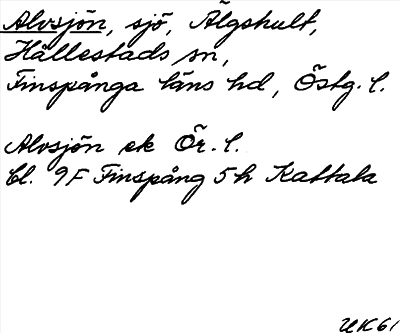 Alvsjön, sjö, Älgshult,
Hällestads sn,
Finspånga läns hd, Östg. l.
Alvsjön ek Ör. l.
Bl. 9F Finspång 5h Kattala
UK61